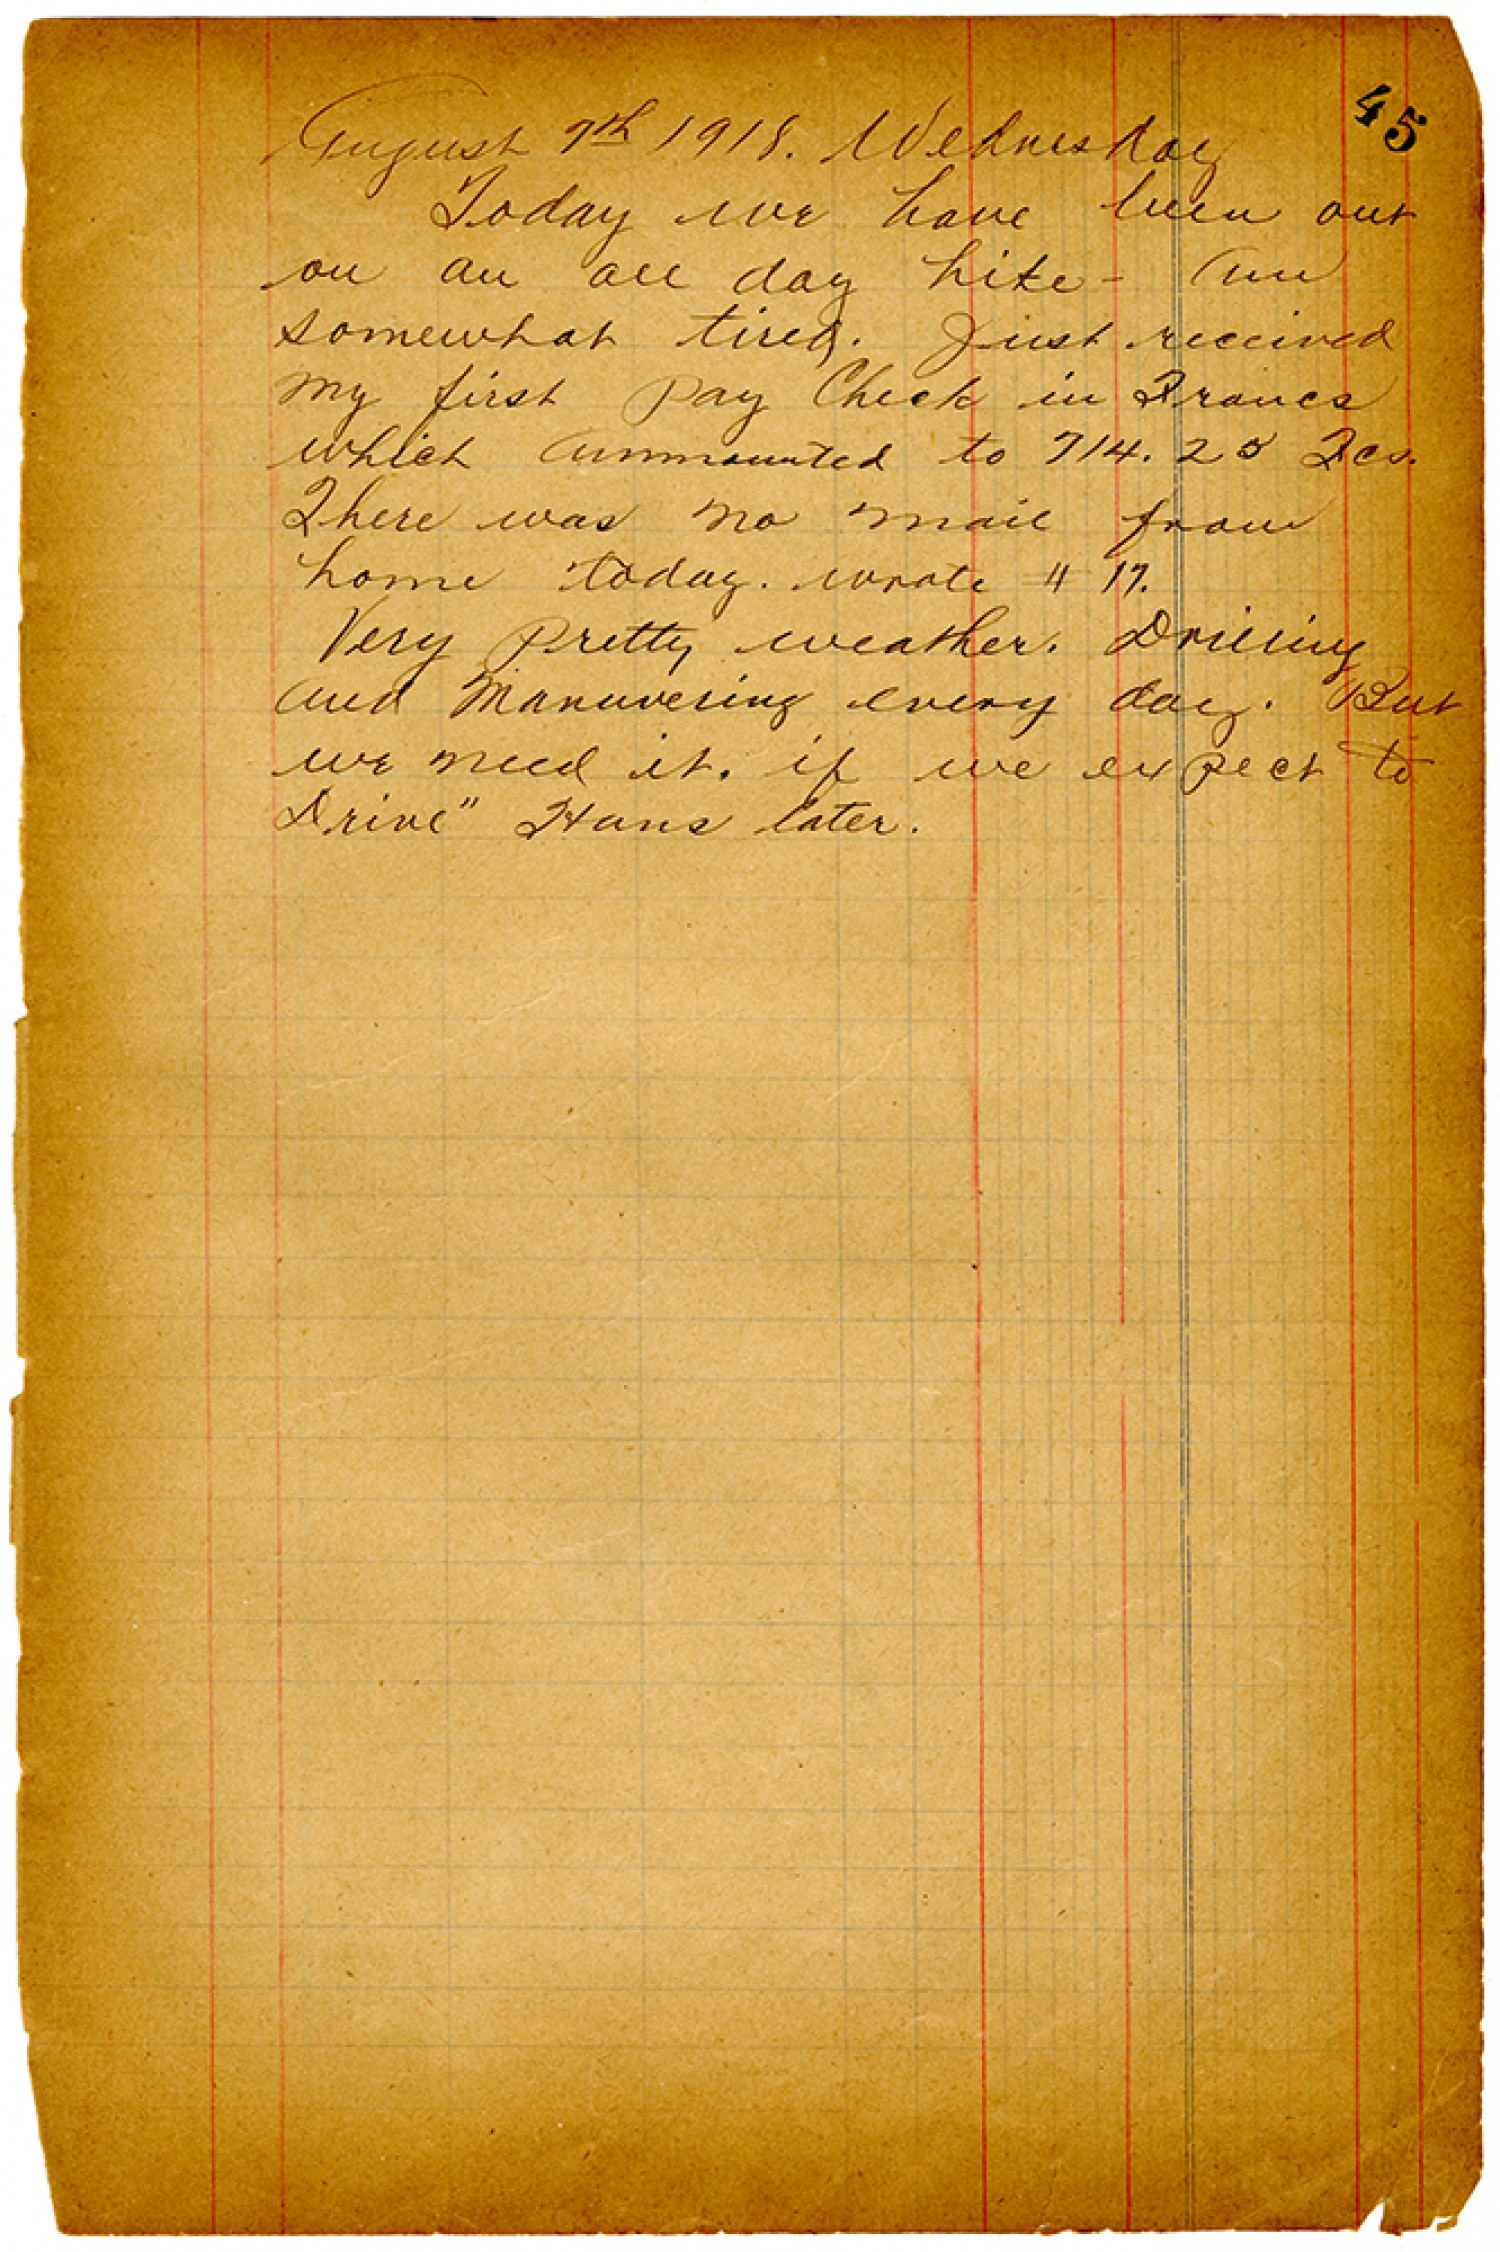 45
August 7th 1918. Wednesday
Today we have been out
on an all day hike - Am
somewhat tired. Just received
my first pay Check in Francs
which ammounted to 714.25 Fcs.
There was no mail from
home today. wrote # 17.
Very pretty weather. Drilling
and Manuvering every day. But
we need it. if we expect to
Drive" Huns later.